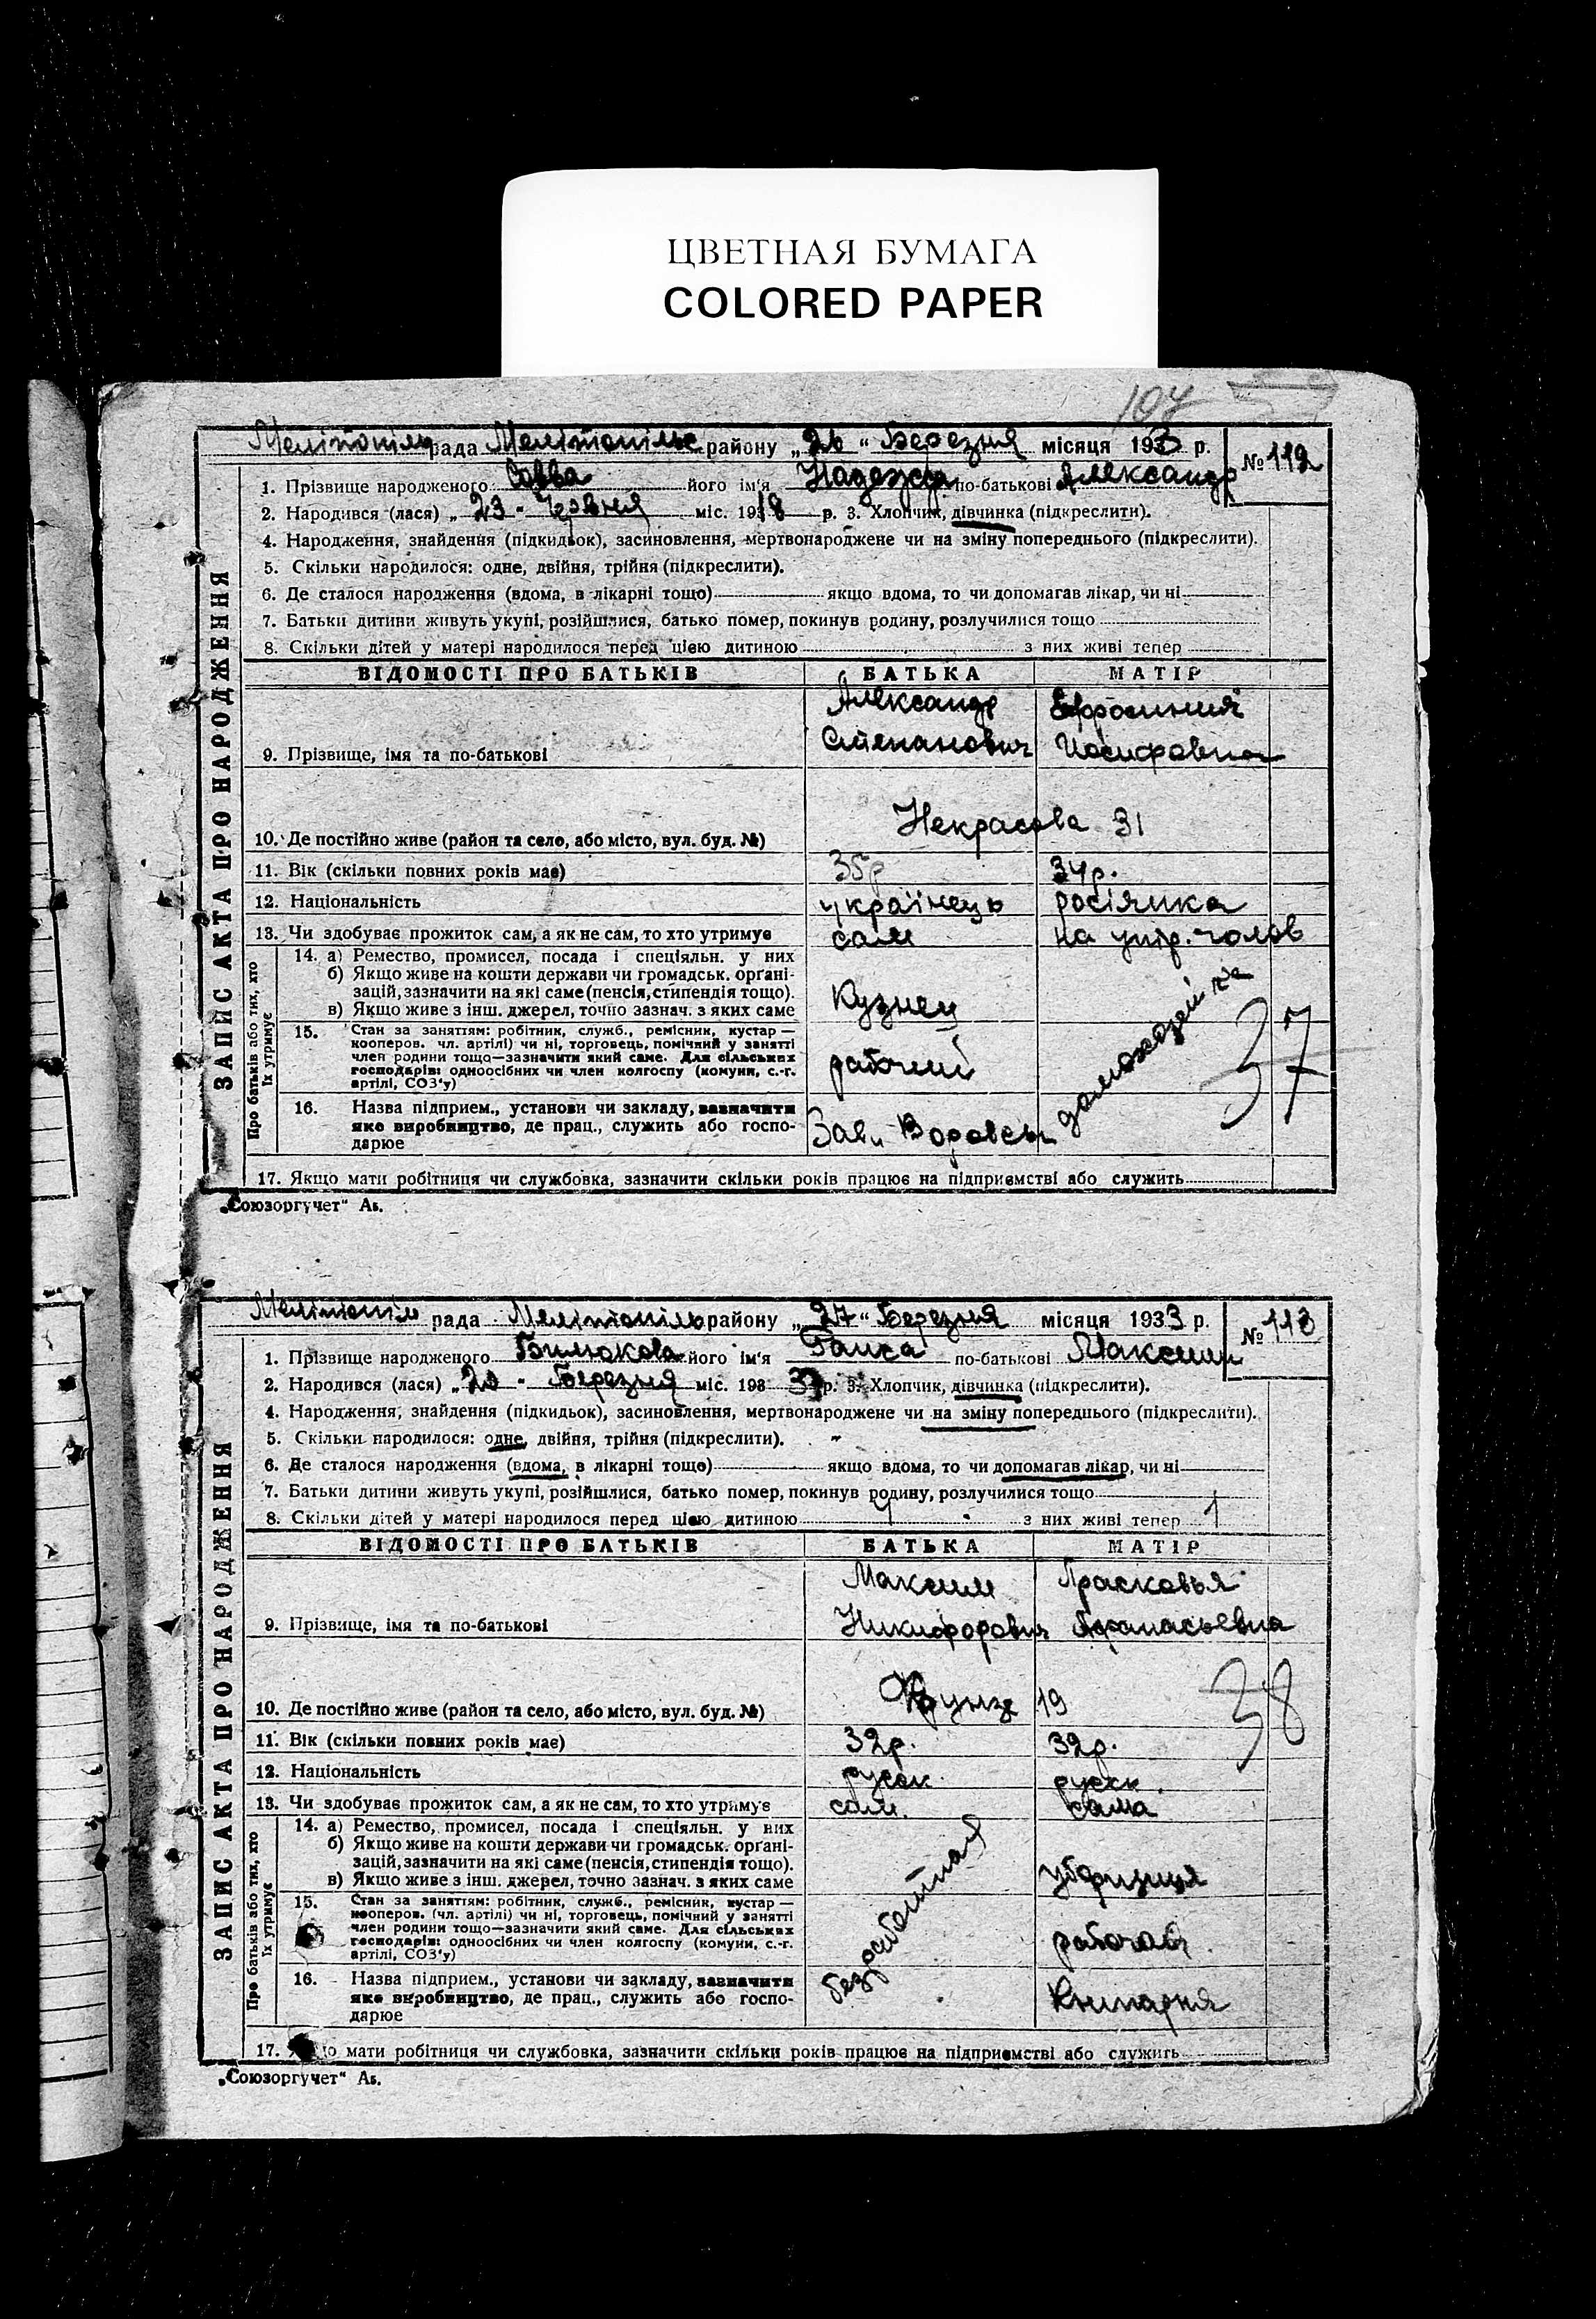 ЦВЕТНАЯ БУМАГА
COLORED PAPER
107
Мелітопіль рада Мелітопільс району „26“ Березня місяця 1933 р. № 112
ЗАПИС АКТА ПРО НАРОДЖЕННЯ
1. Прізвище народженого Савва його ім'я Надежда по-батькові Александр
2. Народився (лася) „23 - Червня міс. 1918 р. 3. Хлопчик, дівчинка (підкреслити).
4. Народження, знайдення (підкидьок), засиновлення, мертвонароджене чи на зміну попереднього (підкреслити).
5. Скільки народилося: одне, двійня, трійня (підкреслити).
6. Де сталося народження (вдома, в лікарні тощо) якщо вдома, то чи допомагав лікар, чи ні
7. Батьки дитини живуть укупі, розійшлися, батько помер, покинув родину, розлучилися тощо
8. Скільки дітей у матері народилося перед цією дитиною з них живі тепер
ВІДОМОСТІ ПРО БАТЬКІВ БАТЬКА МАТІР
Александр Ефросиния
9. Прізвище, імя та по-батькові Степанович Иосифовна
10. Де постійно живе (район та село, або місто, вул. буд. №) Некрасова 31
11. Вік (скільки повних років має) 35р 34р.
12. Національність українець росіянка
13. Чи здобуває прожиток сам, а як не сам, то хто утримує сам на утр. чолов
Про батьків або тих, хто їх утримує
14. а) Ремество, промисел, посада і спеціяльн. у них
б) Якщо живе на кошти держави чи громадськ. органі-
зацій, зазначити на які саме (пенсія, стипендія тощо).
в) Якщо живе з інш. джерел, точно зазнач. з яких саме
Кузнец
домохозяйка
15. Стан за заняттям: робітник, служб., ремісник, кустар —
кооперов. чл. артілі) чи ні, торговець, помічний у занятті
член родини тощо—зазначити який саме. Для сільських
господарів: одноосібних чи член колгоспу (комуни, с.-г.
артілі, СОЗ'у)
рабочий
37
16. Назва підприєм., установи чи закладу, зазначити
яке виробництво, де прац., служить або госпо-
дарюе
Зав.
17. Якщо мати робітниця чи службовка, зазначити скільки років працює на підприємстві або служить
„Союзоргучет“ Аб.
Мелітопіль рада Мелітопіль району „27“ Березня місяця 1933 р. № 113
ЗАПИС АКТА ПРО НАРОДЖЕННЯ
1. Прізвище народженого Бирюкова його ім'я Раиса по-батькові Максим
2. Народився (лася) „20 - Березня міс. 1933 р. 3. Хлопчик, дівчинка (підкреслити).
4. Народження, знайдення (підкидьок), засиновлення, мертвонароджене чи на зміну попереднього (підкреслити).
5. Скільки народилося: одне, двійня, трійня (підкреслити).
6. Де сталося народження (вдома, в лікарні тощо) якщо вдома, то чи допомагав лікар, чи ні
7. Батьки дитини живуть укупі, розійшлися, батько помер, покинув родину, розлучилися тощо
8. Скільки дітей у матері народилося перед цією дитиною 4 з них живі тепер 1
ВІДОМОСТІ ПРО БАТЬКІВ БАТЬКА МАТІР
Максим Прасковья
9. Прізвище, імя та по-батькові Никифорович Афанасьевна
10. Де постійно живе (район та село, або місто, вул. буд. №) Фрунзе 19
38
11. Вік (скільки повних років має) 32р. 32р.
12. Національність русск. русск.
13. Чи здобуває прожиток сам, а як не сам, то хто утримує сам. сама
Про батьків або тих, хто їх утримує
14. а) Ремество, промисел, посада і спеціяльн. у них
б) Якщо живе на кошти держави чи громадськ. органі-
зацій, зазначити на які саме (пенсія, стипендія тощо).
в) Якщо живе з інш. джерел, точно зазнач. з яких саме
безработная
15. Стан за заняттям: робітник, служб., ремісник, кустар —
кооперов. (чл. артілі) чи ні, торговець, помічний у занятті
член родини тощо—зазначити який саме. Для сільських
господарів: одноосібних чи член колгоспу (комуни, с.-г.
артілі, СОЗ'у)
16. Назва підприєм., установи чи закладу, зазначити
яке виробництво, де прац., служить або госпо-
дарюе
Книгарня
17. мати робітниця чи службовка, зазначити скільки років працює на підприємстві або служить
„Союзоргучет“ Аб.